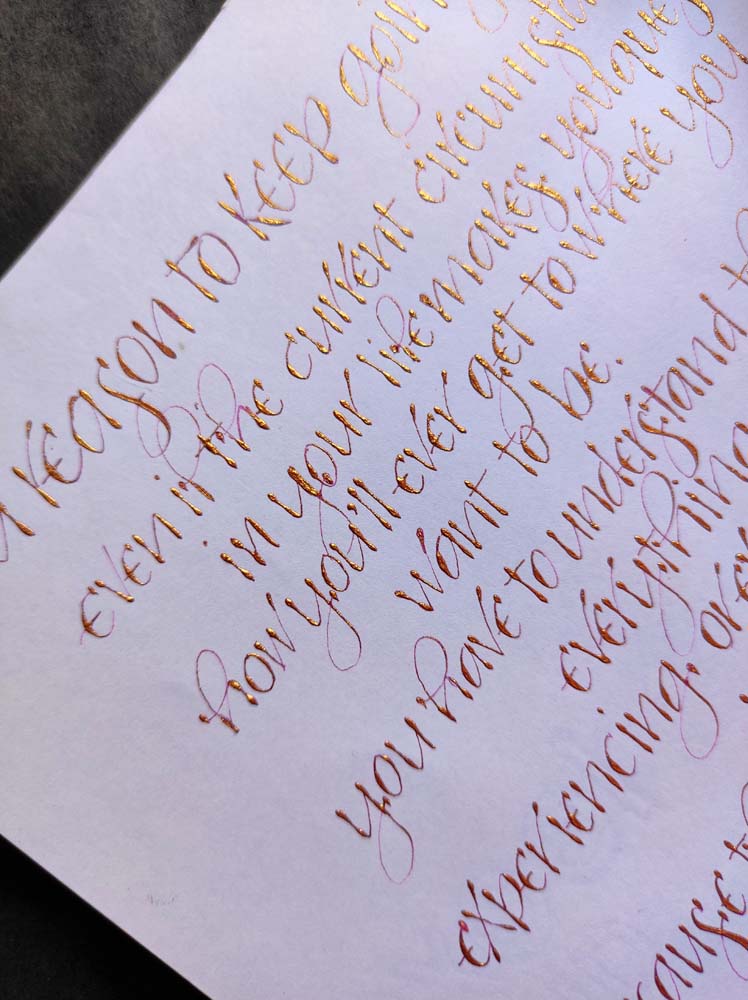 reason to keep going
even if the current
in your life makes you
how you'll ever get to where you
want to be.
you have to understand
everything
experiencing, over